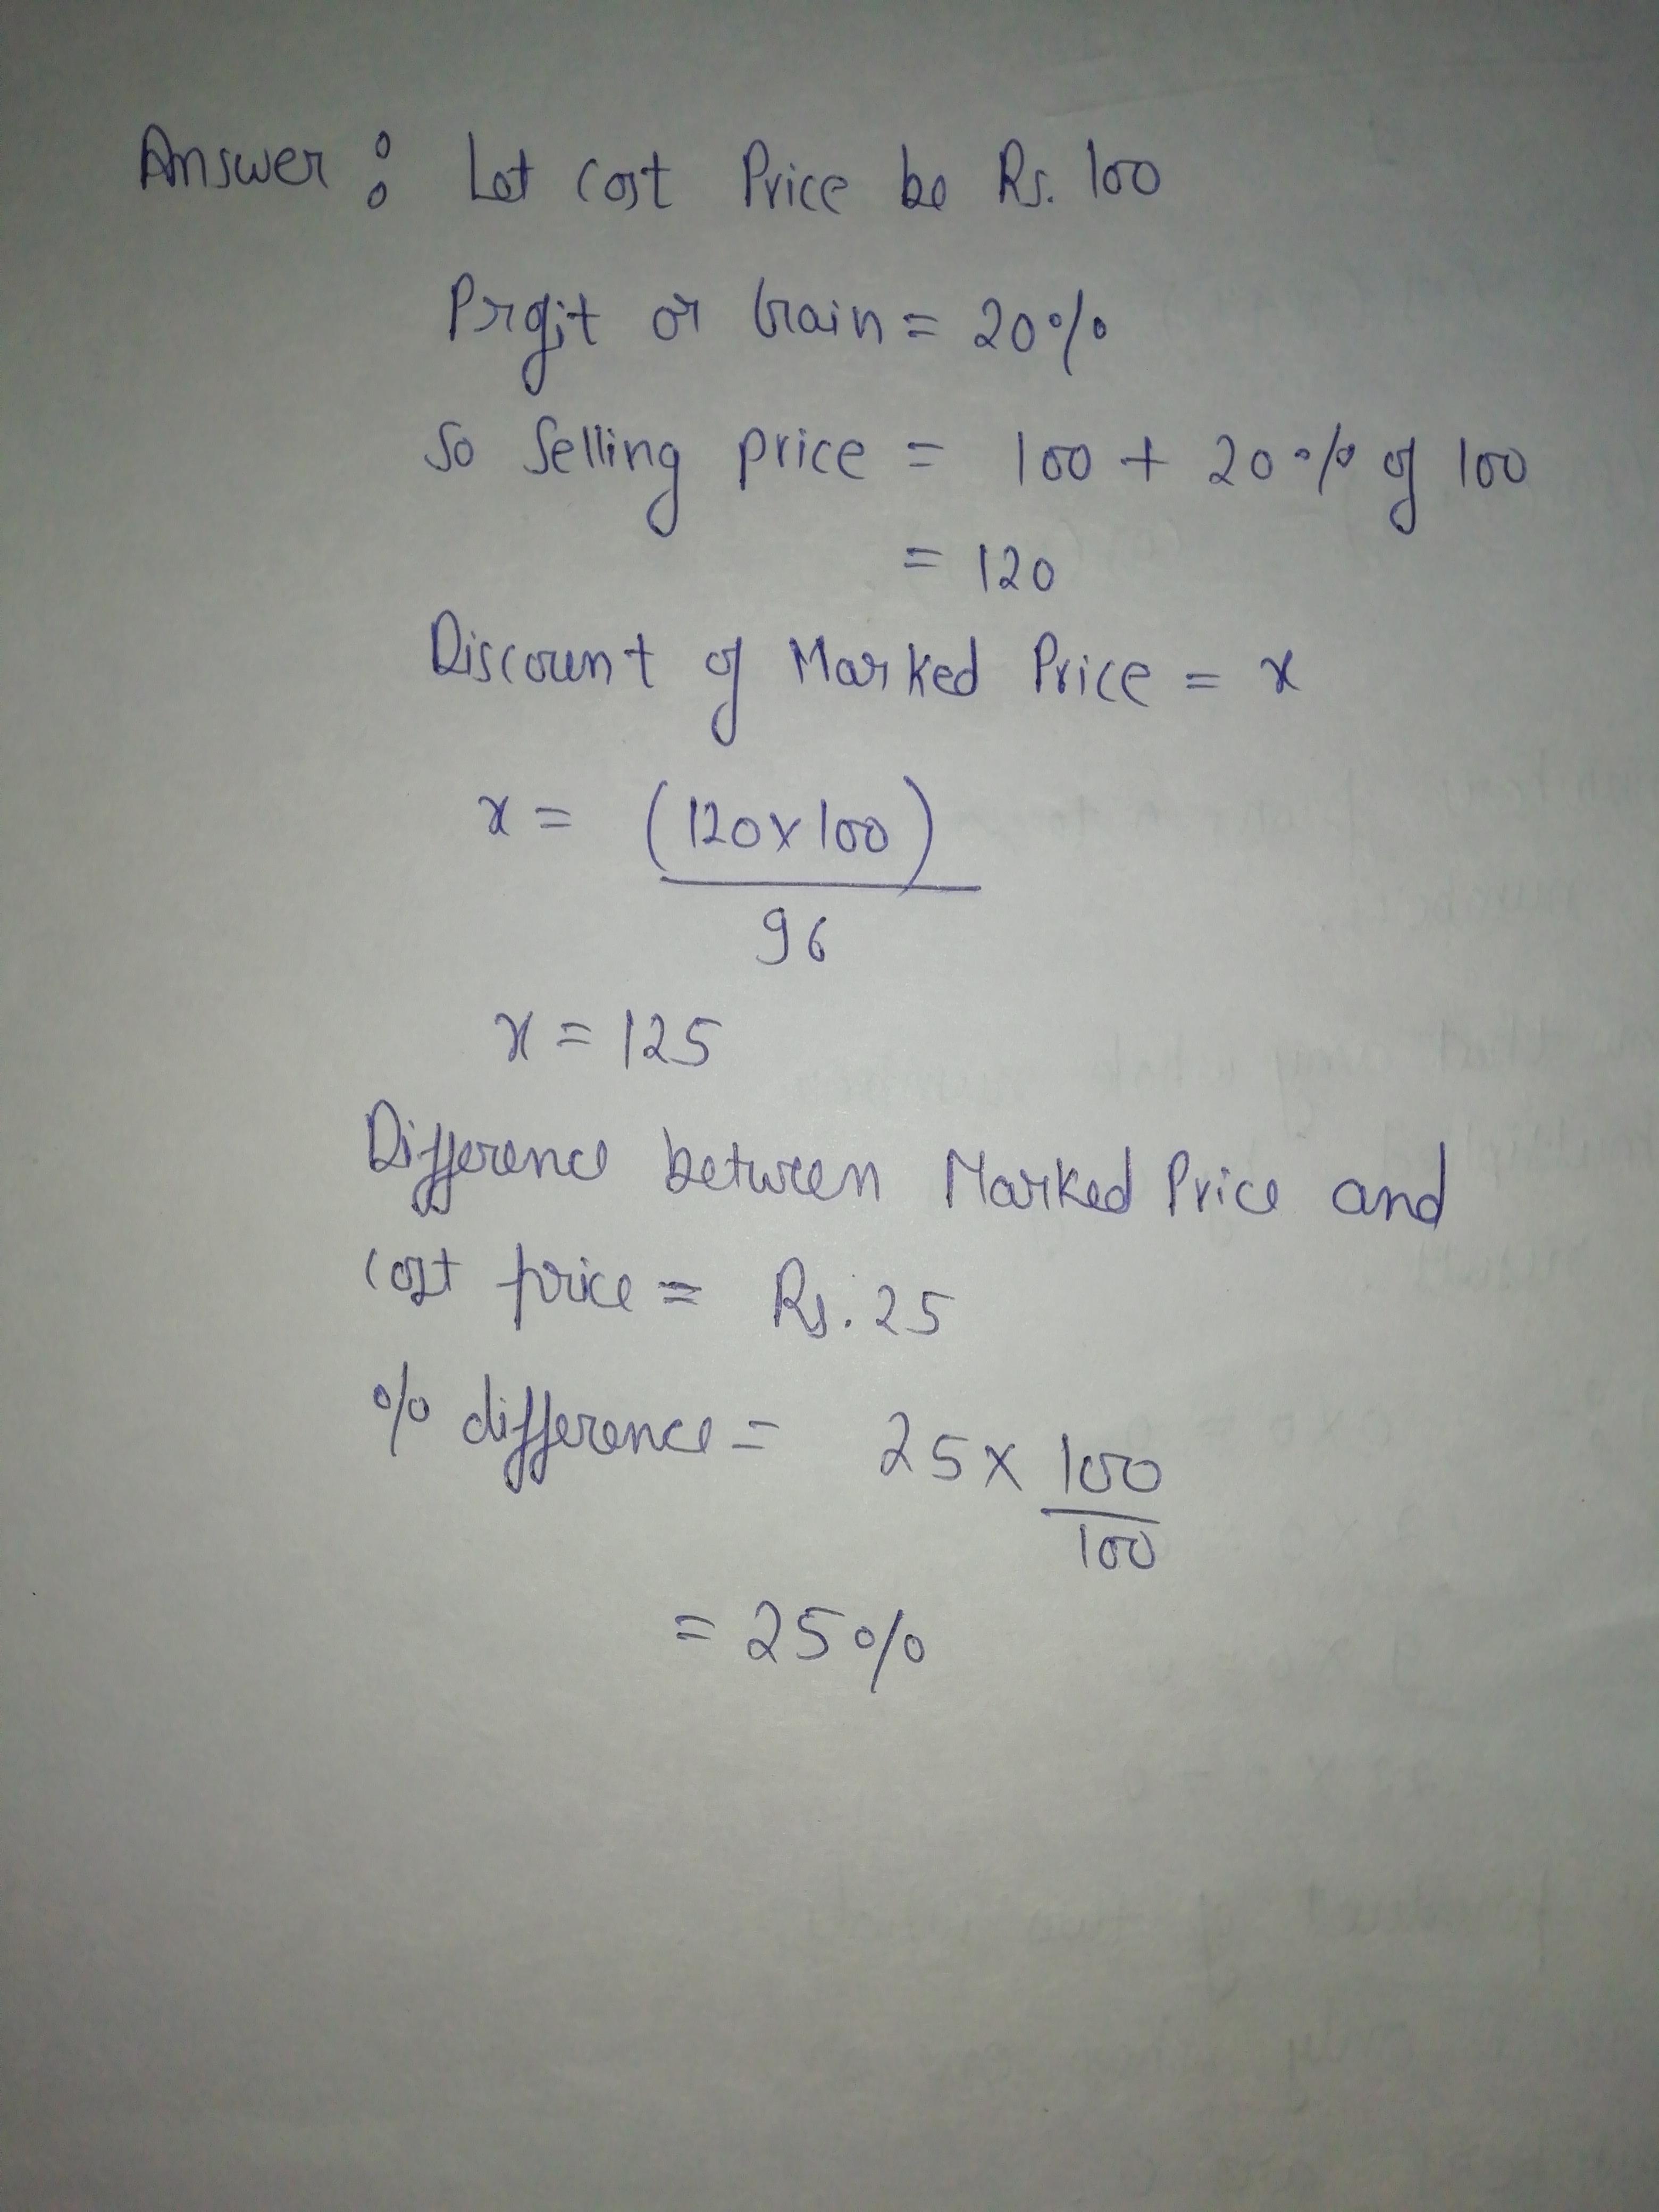 Answer : Let Cost Price be Rs. 100
Profit or Gain = 20%
So Selling price = 100 + 20% of 100
= 120
Discount of Marked Price = x
x = (120x100)
96
x = 125
Difference between Marked Price and
cost price = Rs. 25
% difference = 25 x 100
100
= 25%